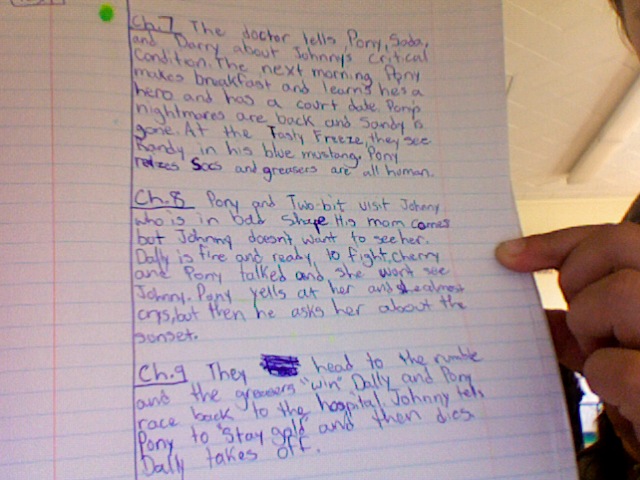 Ch.7 The doctor tells Pony, Soda,
and Darry about Johnny's critical
Condition. The next morning Pony
makes breakfast and learns he's a
hero and has a court date. Pony's
nightmares are back and Sandy is
gone. At the Tasty Freeze, they see
Randy in his blue mustang. Pony
relizes Socs and greasers are all human.
Ch.8 Pony and Two-bit visit Johnny
who is in bad shape His mom comes
but Johnny doesn't want to see her.
Dally is fine and ready to fight. Cherry
and Pony talked and she wont see
Johnny. Pony yells at her and she almost
crys, but then he asks her about the
sunset.
Ch.9 They head to the rumble
and the greasers "win". Dally and Pony
race back to the hospital. Johnny tells
Pony to "Stay gold" and then dies.
Dally takes off.